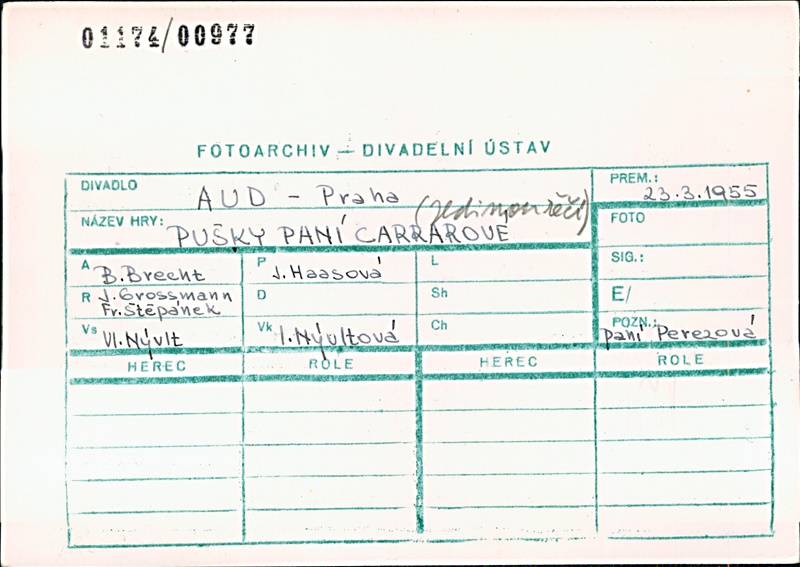 01174/00977
FOTOARCHIV — DIVADELNÍ ÚSTAV
DIVADLO AUD - Praha
PREM.: 23.3.1955
NÁZEV HRY: PUŠKY PANÍ CARRAROVÉ (Jedinou řečí)
FOTO
A B. Brecht
P J. Haasová
L
SIG.:
R J. Grossmann
Fr. Štěpánek
D
Sh
E/
Vs Vl. Nývlt
Vk I. Nývltová
Ch
POZN.: paní Perezová
HEREC ROLE HEREC ROLE